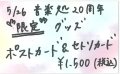 5/26 音楽処20周年
"限定" グッズ
ポストカード&セトリカード
¥1,500(税込)